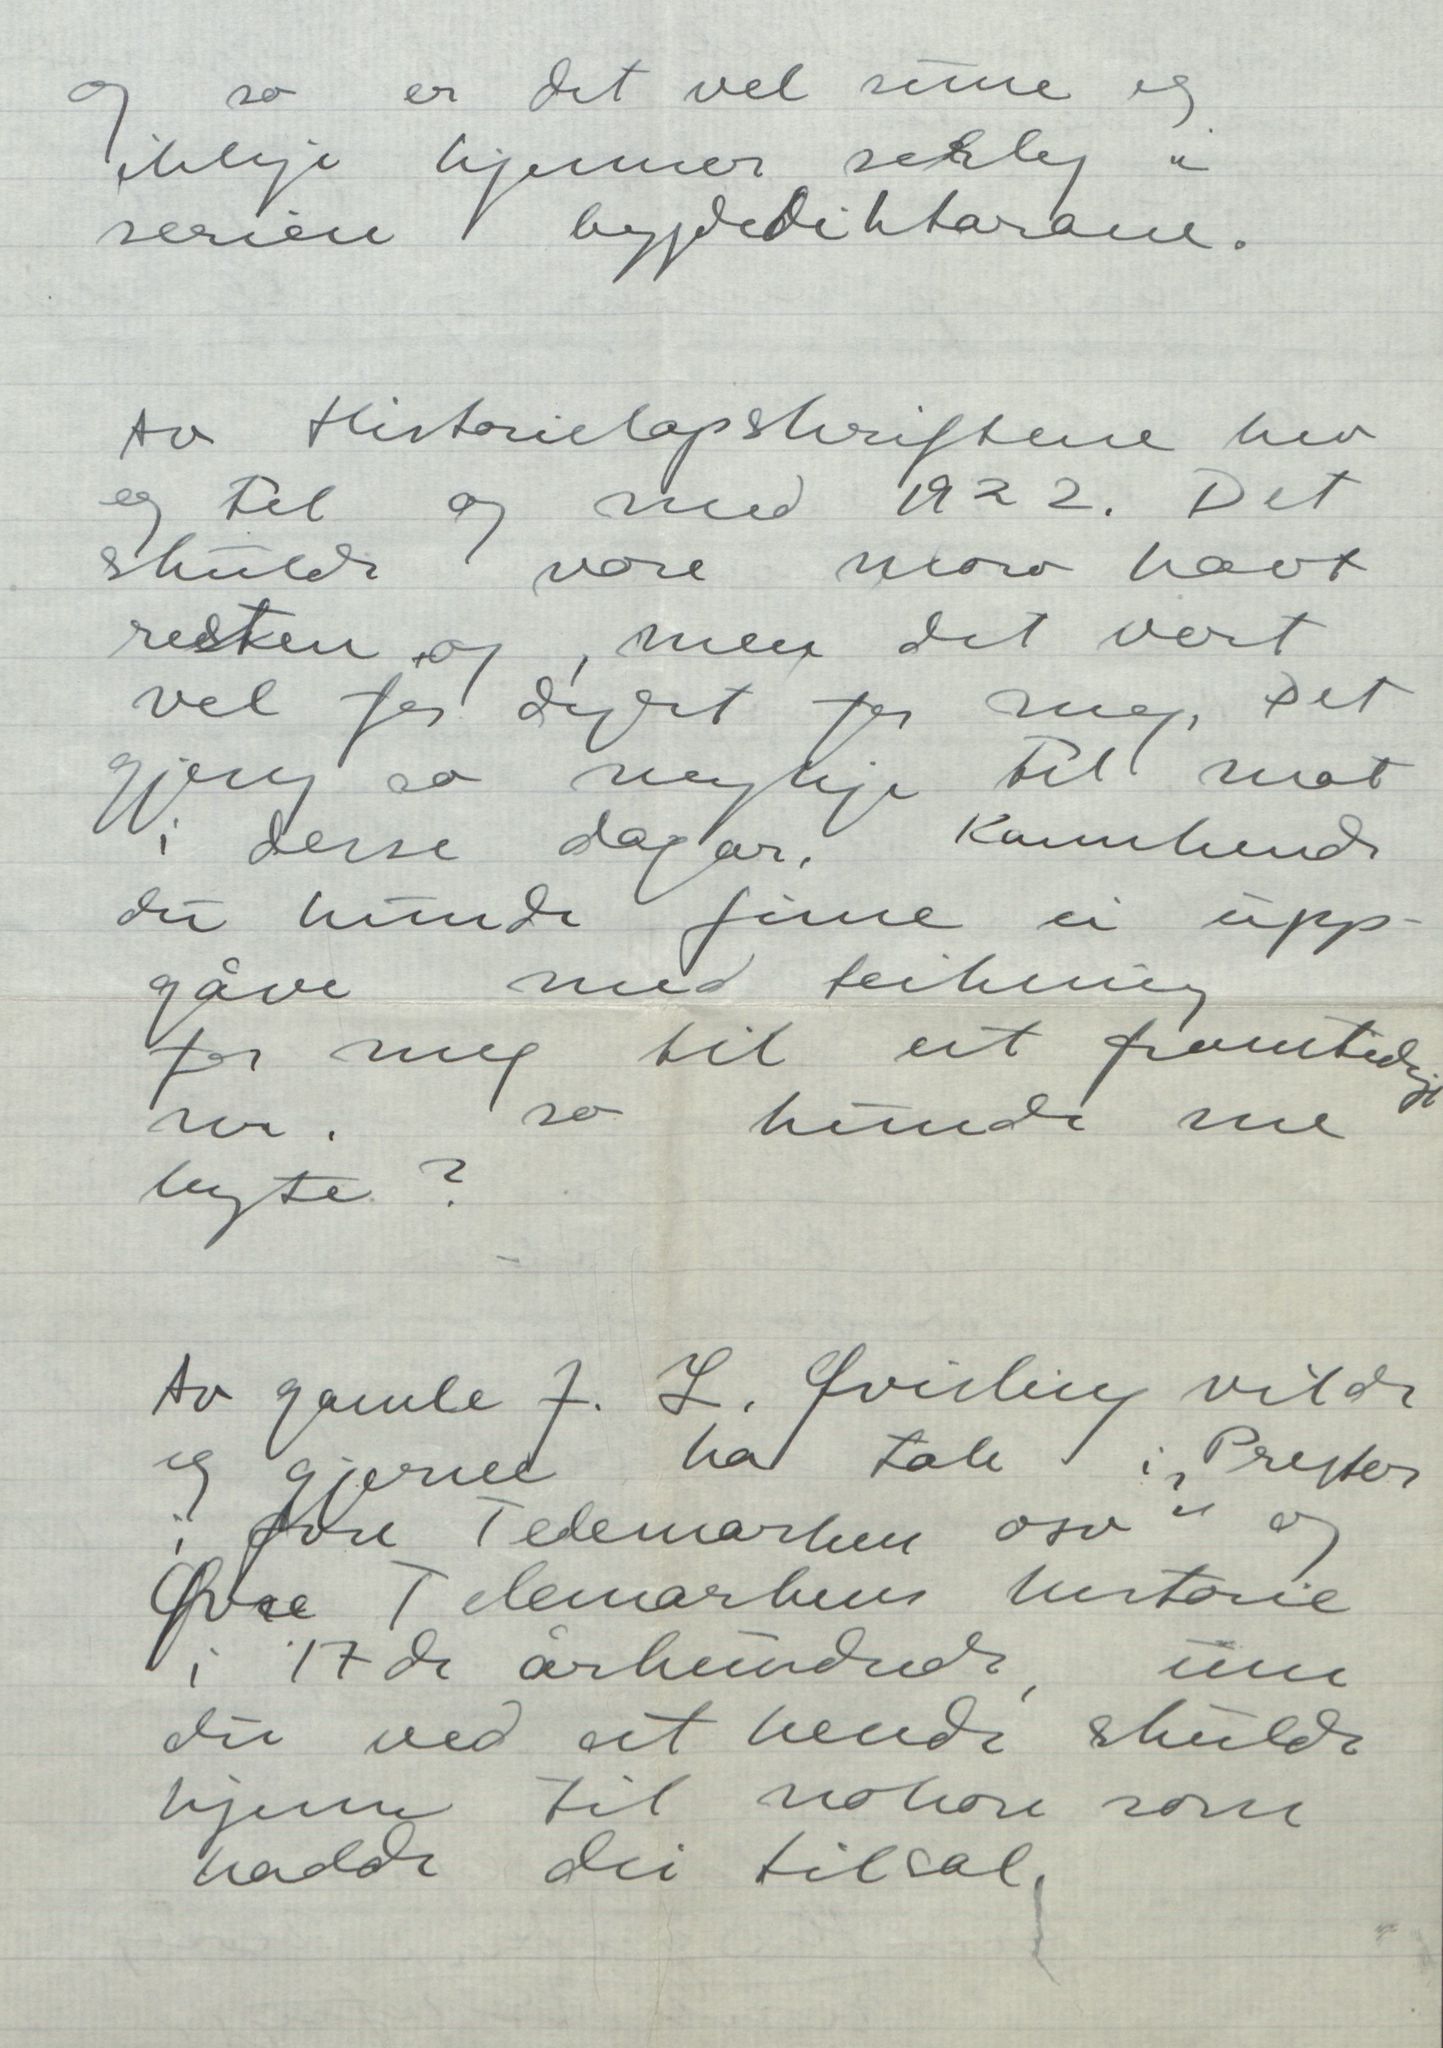 og so er det vel sume eg
ikkje kjenner serleg i
serien bygdediktarane.
Av Historielagsskriftene hev
eg til og med 1922. Det
skulde vore moro havt
resten og, men det vert
vel for dyrt for meg. Det
gjeng so mykje til mat
i desse dagar. Kannhende
du kunde finne ei upp-
gåve med teikning
for meg til eit framtidigt
nr. so kunde me
byte?
Av gamle J. L. Qvisling vilde
eg gjerne ha tak i "Prester
i øvre Telemarken osv" og
Øvre Telemarkens historie
i 17de århundrede, um
du ved eit hende skulde
kjenne til nokon som
hadde dei tilsal.